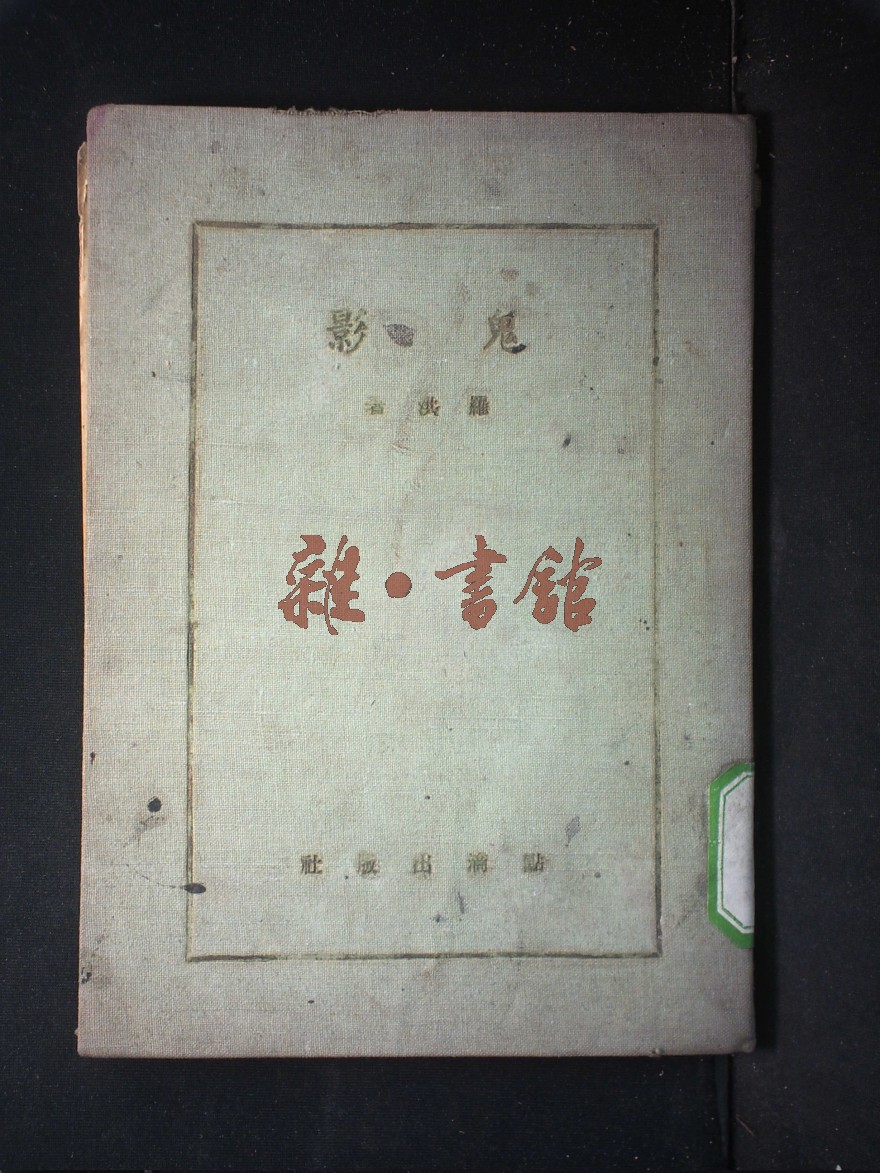 鬼影
羅洪著
雜·書館
點滴出版社